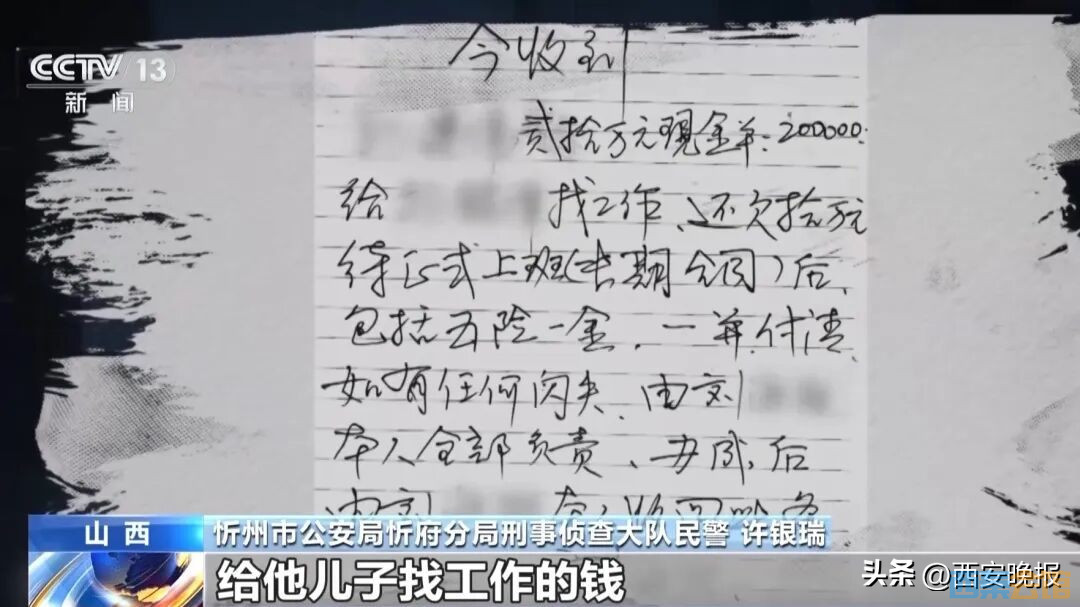 CCTV 13
新闻
今收到
贰拾万元现金单:200000.
给 找工作、还欠拾万元
待正式上班(长期合同)后,
包括五险一金,一并付清,
如有任何闪失、由刘
本人全部负责、办成,后
山西 忻州市公安局忻府分局刑事侦查大队民警 许银瑞
给他儿子找工作的钱
头条 @西安晚报